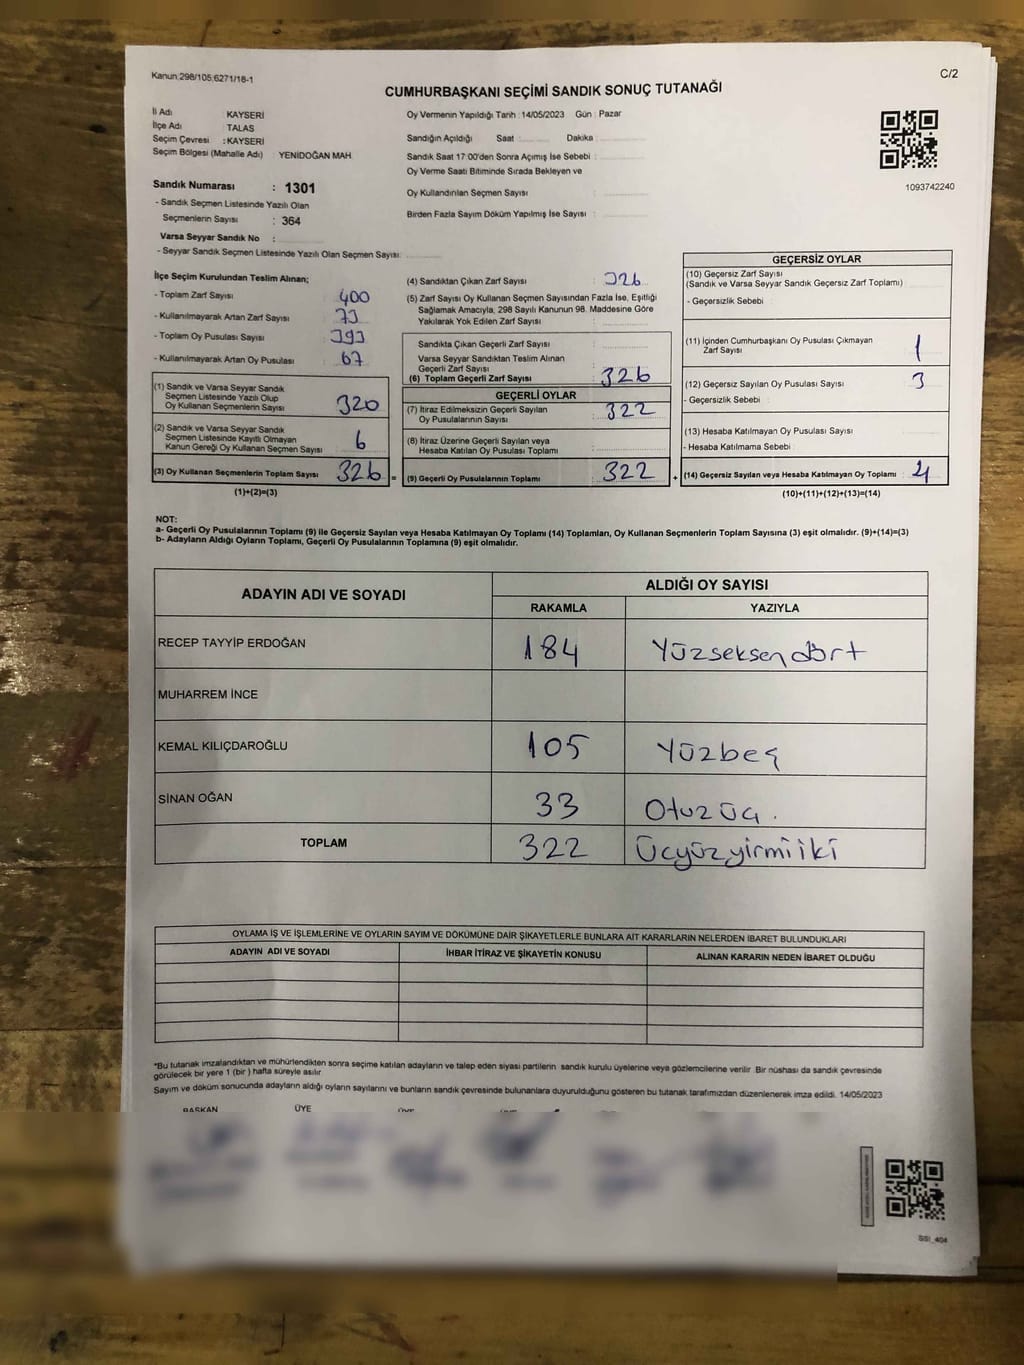 Kanun:298/105;6271/18-1
C/2
CUMHURBAŞKANI SEÇİMİ SANDIK SONUÇ TUTANAĞI
İl Adı KAYSERİ
İlçe Adı TALAS
Seçim Çevresi : KAYSERİ
Seçim Bölgesi (Mahalle Adı) : YENİDOĞAN MAH.
Sandık Numarası : 1301
- Sandık Seçmen Listesinde Yazılı Olan
Seçmenlerin Sayısı : 364
Varsa Seyyar Sandık No :
- Seyyar Sandık Seçmen Listesinde Yazılı Olan Seçmen Sayısı:
Oy Vermenin Yapıldığı Tarih : 14/05/2023 Gün : Pazar
Sandığın Açıldığı Saat : Dakika :
Sandık Saat 17:00'den Sonra Açımış İse Sebebi :
Oy Verme Saati Bitiminde Sırada Bekleyen ve
Oy Kullandırılan Seçmen Sayısı :
Birden Fazla Sayım Döküm Yapılmış İse Sayısı :
1093742240
İlçe Seçim Kurulundan Teslim Alınan;
- Toplam Zarf Sayısı : 400
- Kullanılmayarak Artan Zarf Sayısı : 73
- Toplam Oy Pusulası Sayısı : 393
- Kullanılmayarak Artan Oy Pusulası : 67
(1) Sandık ve Varsa Seyyar Sandık
Seçmen Listesinde Yazılı Olup
Oy Kullanan Seçmenlerin Sayısı 320
(2) Sandık ve Varsa Seyyar Sandık
Seçmen Listesinde Kayıtlı Olmayan
Kanun Gereği Oy Kullanan Seçmen Sayısı 6
(3) Oy Kullanan Seçmenlerin Toplam Sayısı 326 =
(1)+(2)=(3)
(4) Sandıktan Çıkan Zarf Sayısı : 326
(5) Zarf Sayısı Oy Kullanan Seçmen Sayısından Fazla İse, Eşitliği
Sağlamak Amacıyla, 298 Sayılı Kanunun 98. Maddesine Göre
Yakılarak Yok Edilen Zarf Sayısı :
Sandıkta Çıkan Geçerli Zarf Sayısı :
Varsa Seyyar Sandıktan Teslim Alınan
Geçerli Zarf Sayısı :
(6) Toplam Geçerli Zarf Sayısı : 326
GEÇERLİ OYLAR
(7) İtiraz Edilmeksizin Geçerli Sayılan
Oy Pusulalarının Sayısı : 322
(8) İtiraz Üzerine Geçerli Sayılan veya
Hesaba Katılan Oy Pusulası Toplamı :
(9) Geçerli Oy Pusulalarının Toplamı : 322 +
GEÇERSİZ OYLAR
(10) Geçersiz Zarf Sayısı
(Sandık ve Varsa Seyyar Sandık Geçersiz Zarf Toplamı) :
- Geçersizlik Sebebi :
(11) İçinden Cumhurbaşkanı Oy Pusulası Çıkmayan
Zarf Sayısı : 1
(12) Geçersiz Sayılan Oy Pusulası Sayısı : 3
- Geçersizlik Sebebi :
(13) Hesaba Katılmayan Oy Pusulası Sayısı :
- Hesaba Katılmama Sebebi :
(14) Geçersiz Sayılan veya Hesaba Katılmayan Oy Toplamı : 4
(10)+(11)+(12)+(13)=(14)
NOT:
a- Geçerli Oy Pusulalarının Toplamı (9) ile Geçersiz Sayılan veya Hesaba Katılmayan Oy Toplamı (14) Toplamları, Oy Kullanan Seçmenlerin Toplam Sayısına (3) eşit olmalıdır. (9)+(14)=(3)
b- Adayların Aldığı Oyların Toplamı, Geçerli Oy Pusulalarının Toplamına (9) eşit olmalıdır.
ADAYIN ADI VE SOYADI
ALDIĞI OY SAYISI
RAKAMLA YAZIYLA
RECEP TAYYİP ERDOĞAN 184 Yüzseksendört
MUHARREM İNCE
KEMAL KILIÇDAROĞLU 105 Yüzbeş
SİNAN OĞAN 33 Otuzüç.
TOPLAM 322 Üçyüzyirmiiki
OYLAMA İŞ VE İŞLEMLERİNE VE OYLARIN SAYIM VE DÖKÜMÜNE DAİR ŞİKAYETLERLE BUNLARA AİT KARARLARIN NELERDEN İBARET BULUNDUKLARI
ADAYIN ADI VE SOYADI İHBAR İTİRAZ VE ŞİKAYETİN KONUSU ALINAN KARARIN NEDEN İBARET OLDUĞU
*Bu tutanak imzalandıktan ve mühürlendikten sonra seçime katılan adayların ve talep eden siyasi partilerin sandık kurulu üyelerine veya gözlemcilerine verilir. Bir nüshası da sandık çevresinde
görülecek bir yere 1 (bir) hafta süreyle asılır.
Sayım ve döküm sonucunda adayların aldığı oyların sayılarını ve bunların sandık çevresinde bulunanlara duyurulduğunu gösteren bu tutanak tarafımızdan düzenlenerek imza edildi. 14/05/2023
BAŞKAN ÜYE ÜYE ÜYE
SSI_404